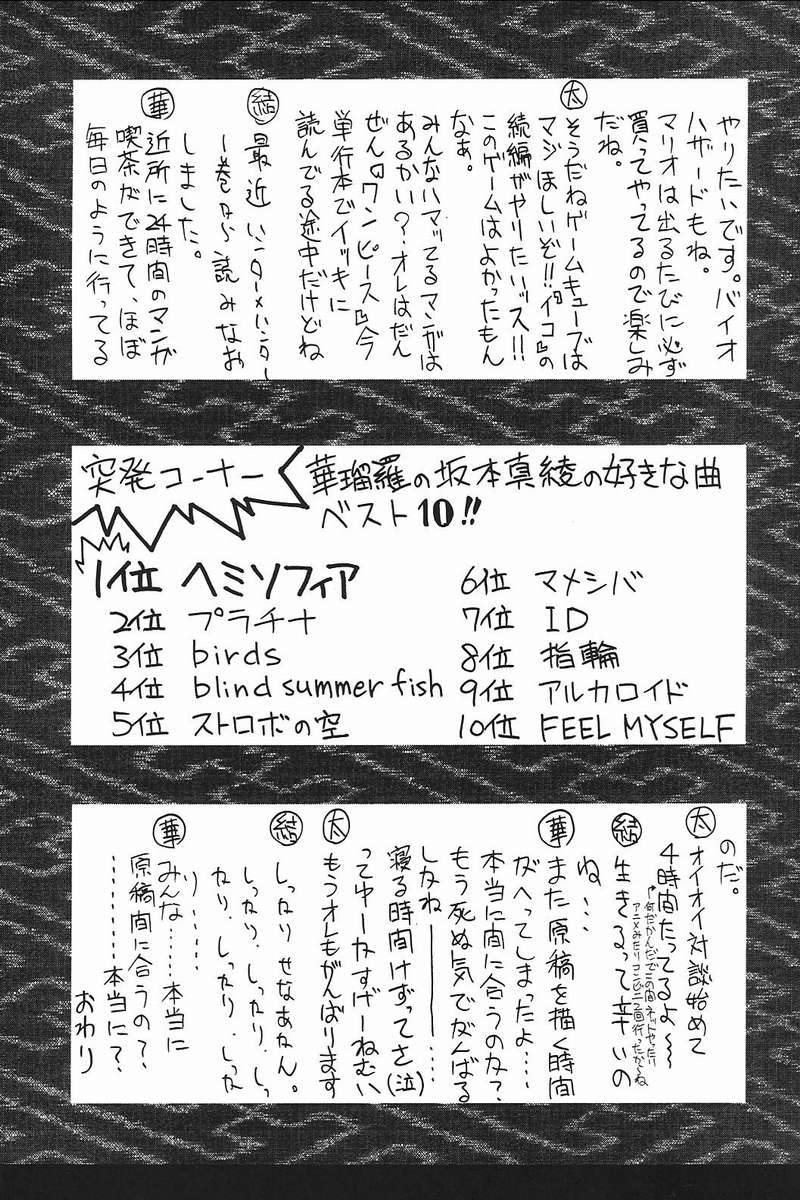 やりたいです。バイオ
ハザードもね。
マリオは出るたびに必ず
買ってやってるので楽しみ
だね。
太 そうだねゲームキューブでは
マジほしいぞ!!『イコ』の
続編がやりたいッス!!
このゲームはよかったもん
なぁ。
みんなハマッてるマンガは
あるかい?オレはだん
ぜん『ワンピース』今
単行本でイッキに
読んでる途中だけどね
結 最近ハンター×ハンター
1巻から読みなお
しました。
華 近所に24時間のマンガ
喫茶ができて、ほぼ
毎日のように行ってる
突発コーナー
華瑠羅の坂本真綾の好きな曲
ベスト10!!
1位 ヘミソフィア
2位 プラチナ
3位 birds
4位 blind summer fish
5位 ストロボの空
6位 マメシバ
7位 ID
8位 指輪
9位 アルカロイド
10位 FEEL MYSELF
のだ。
太 オイオイ対談始めて
4時間たってるよ〜〜
何だかんだでこの間ネットやったり
アニメみたりコンビニ2回行ったからね
結 生きるって辛いの
ね…
華 また原稿を描く時間
がへってしまったよ…
本当に間に合うのか?
もう死ぬ気でがんばる
しかね――――…
寝る時間けずってさ(泣)
ってゆーかすげーねむい
太 もうオレもがんばります
結 しったりせなあかん。
しったり、しったり、しっ
たり、しったり、しった
り……
華 みんな……本当に
原稿間に合うの?
………本当に?
おわり